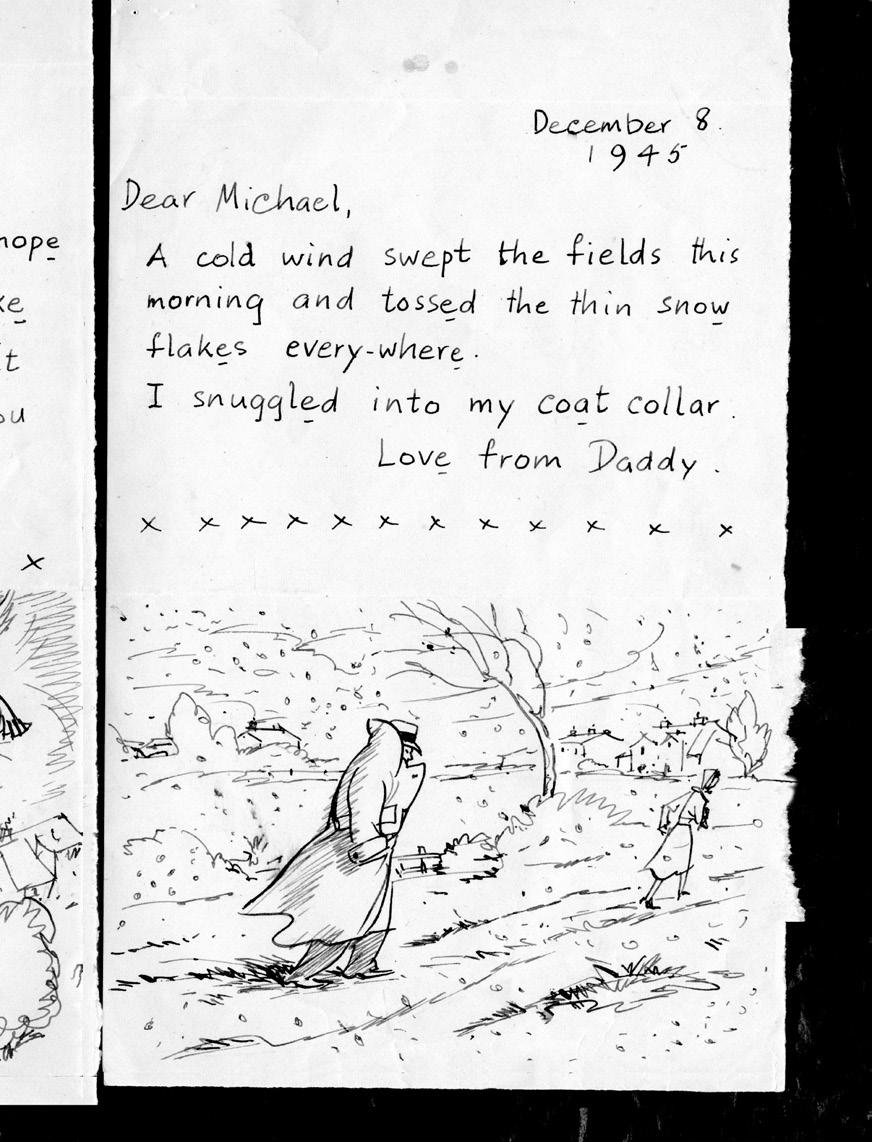 December 8.
1945
Dear Michael,
A cold wind swept the fields this
morning and tossed the thin snow
flakes every-where.
I snuggled into my coat collar.
Love from Daddy.
x x x x x x x x x x x x
hope
x